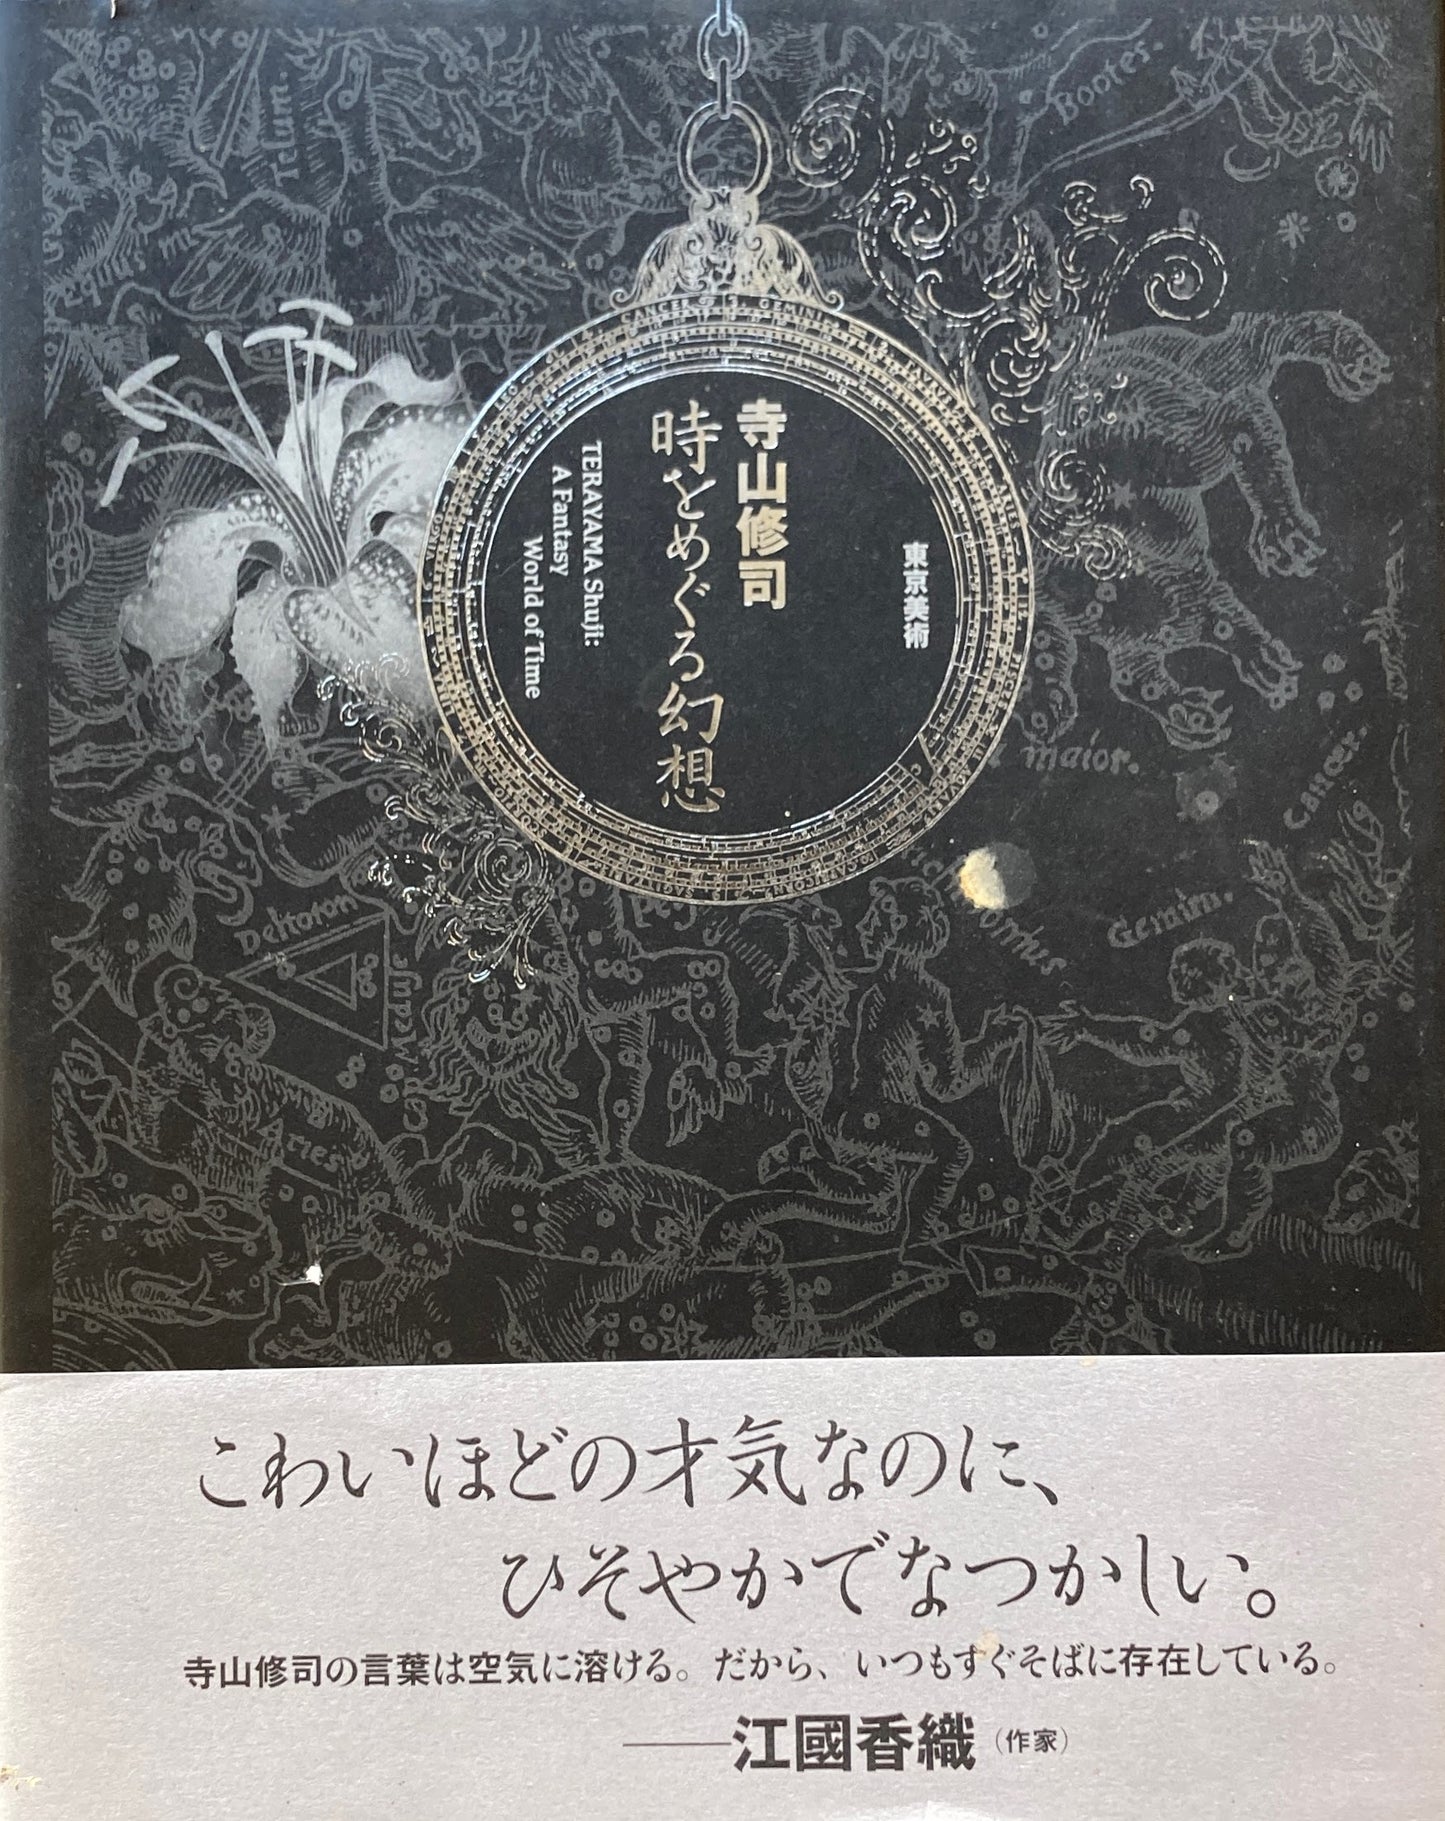 Bootes.
CANCER
GEMINI
TAVRVS
LEO
ARIES
PISCES
寺山修司
時をめぐる幻想
TERAYAMA Shuji:
A Fantasy
World of Time
東京美術
maior.
Cancer.
SAGITTARIVS
CAPRICORN
Deltoron
Gemini.
Aries
こわいほどの才気なのに、
ひそやかでなつかしい。
寺山修司の言葉は空気に溶ける。だから、いつもすぐそばに存在している。
――江國香織（作家）